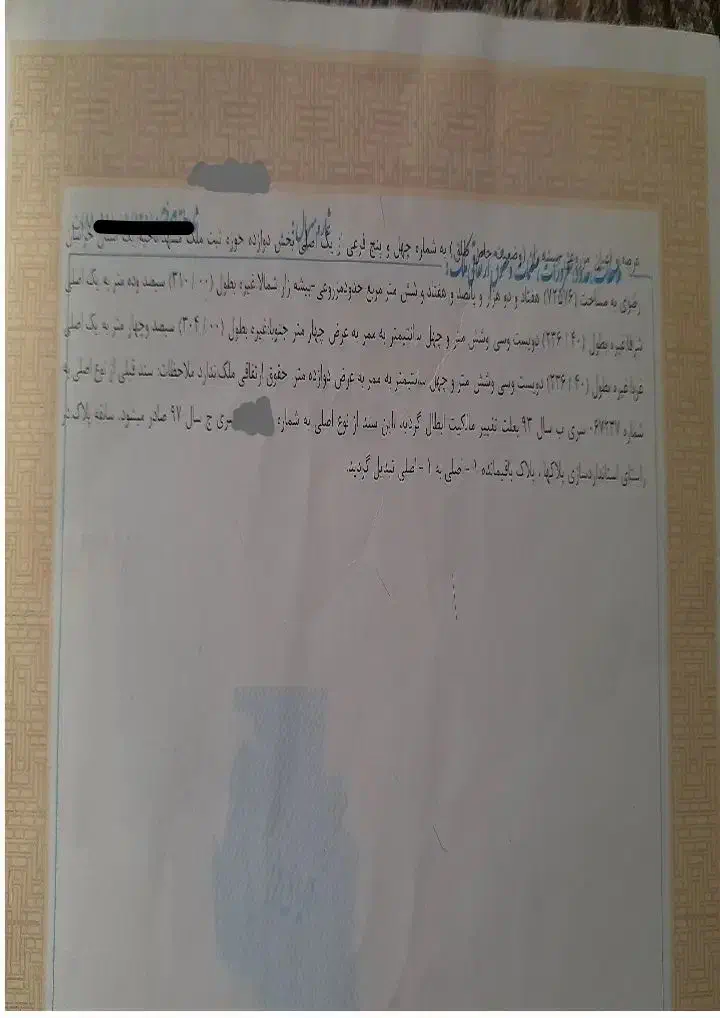 عرصه و اعیان مزروعی -بیشه زار (وضعیت خاص طلق) به شماره چهل و پنج فرعی از یک اصلی بخش دوازده حوزه ثبت ملک مشهد ناحیه یک استان خراسان
رضوی به مساحت (۷۲۵۷۶) هفتاد و دو هزار و پانصد و هفتاد و شش متر مربع حدود:مزروعی-بیشه زار شمالا:غیره بطول (۳۱۰/۰۰) سیصد وده متر به یک اصلی
شرقا:غیره بطول (۲۳۶/۴۰) دویست وسی وشش متر و چهل سانتیمتر به ممر به عرض چهار متر جنوبا:غیره بطول (۳۰۴/۰۰) سیصد وچهار متر به یک اصلی
غربا:غیره بطول (۲۳۶/۴۰) دویست وسی وشش متر و چهل سانتیمتر به ممر به عرض دوازده متر حقوق ارتفاقی ملک:ندارد ملاحظات: سند قبلی از نوع اصلی به
شماره ۰۶۷۲۳۷ سری ب سال ۹۳ بعلت تغییر مالکیت ابطال گردید، این سند از نوع اصلی به شماره سری ج سال ۹۷ صادر میشود. سابقه پلاک:در
راستای استانداردسازی پلاکها، پلاک باقیمانده ۱ - اصلی به ۱ - اصلی تبدیل گردید.